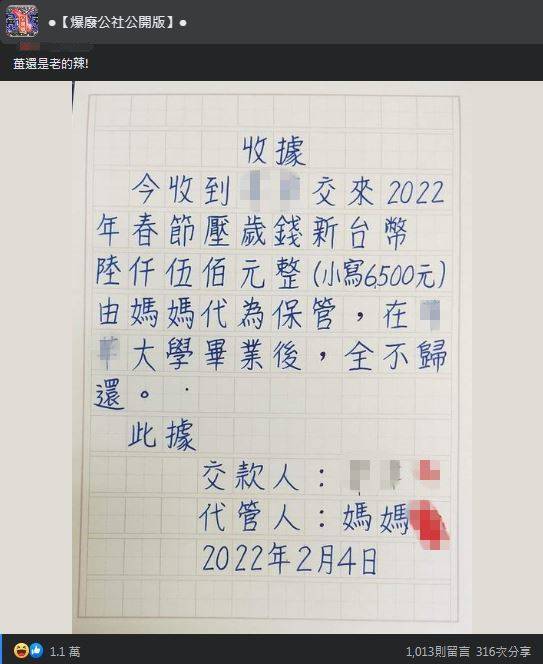 ●【爆廢公社公開版】●
薑還是老的辣!
收據
今收到 交來2022
年春節壓歲錢新台幣
陸仟伍佰元整(小寫6,500元)
由媽媽代為保管，在
大學畢業後，全不歸
還。
此據
交款人：
代管人：媽媽
2022年2月4日
1.1 萬
1,013則留言 316次分享